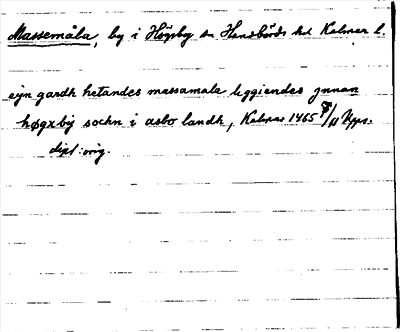 Massemåla, by i Högsby sn Handbörds hd Kalmar l.
eyn gardh hetandes massamala liggiandes jnnan
høgxby sochn i asbo landh, Kalmar 1465 8/11 Upps.
dipl: orig.